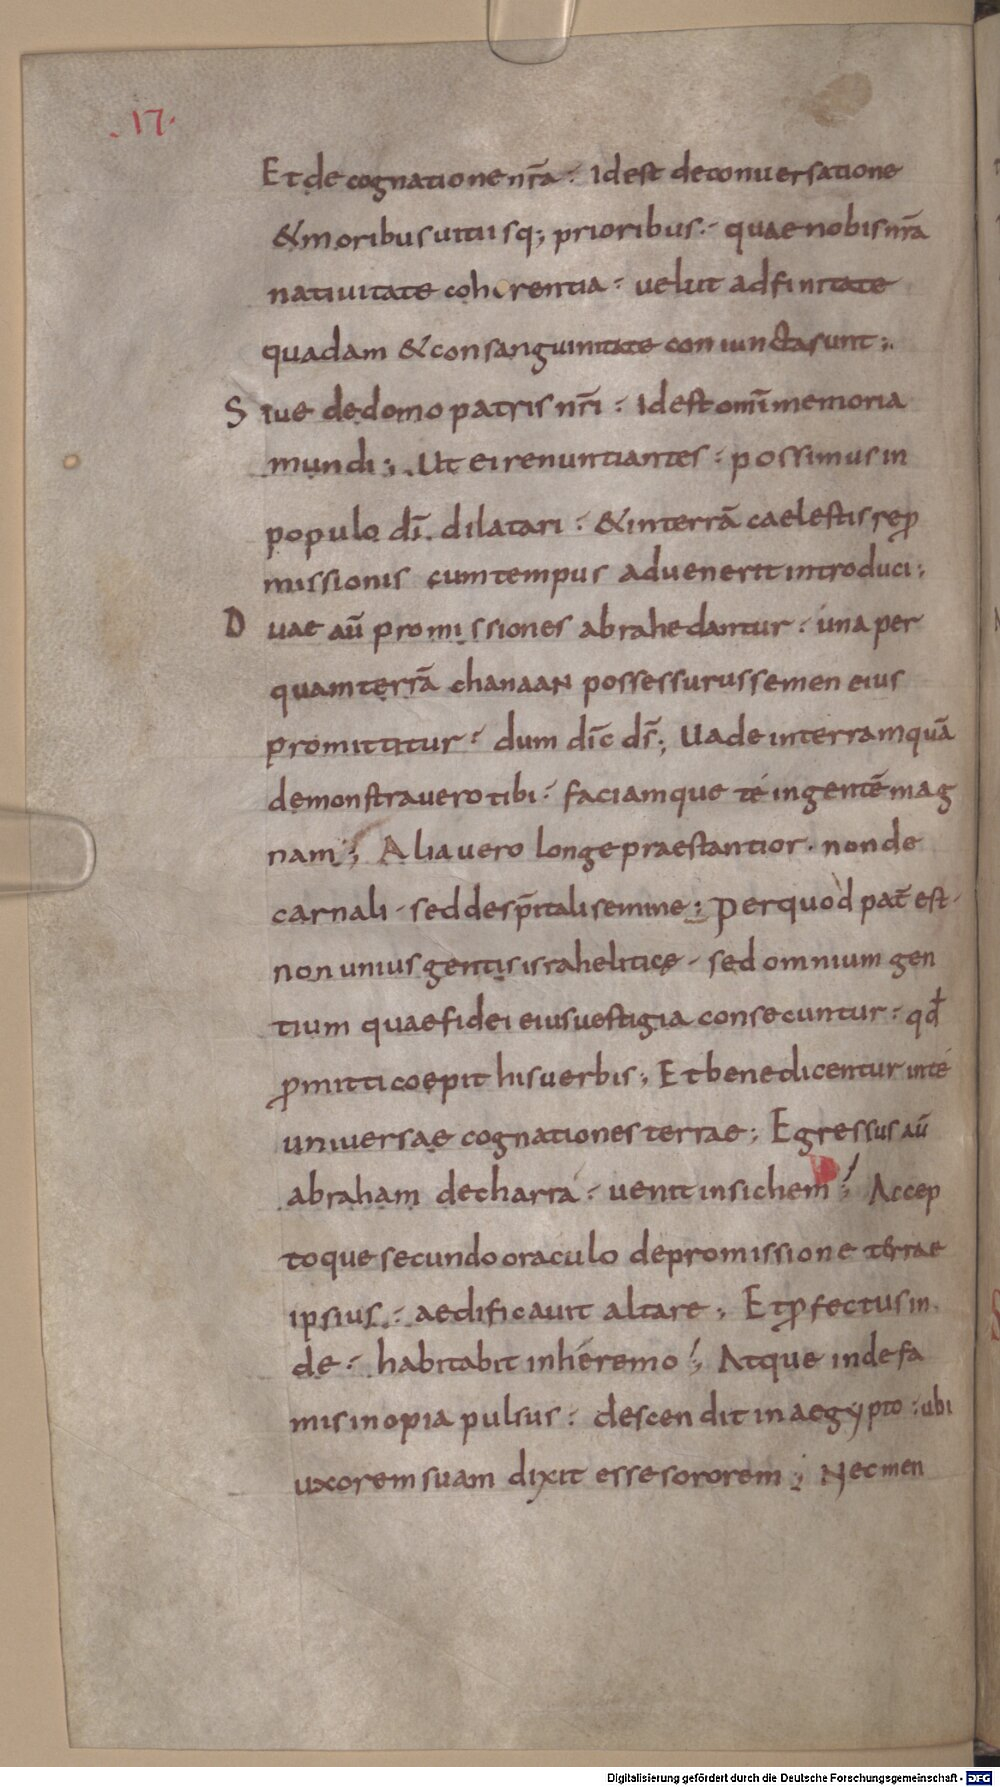 .17.
Et de cognatione nr̄a : Id est de conuersatione
& moribus uitiisq; prioribus : quae nobis nr̄a
natiuitate coherentia : uelut adfinitate
quadam & consanguinitate coniuncta sunt ;
Siue de domo patris nr̄i : Id est om̄i memoria
mundi ; Ut ei renuntiantes : possimus in
populo dī dilatari : & in terrā caelestis rep̱
missionis cum tempus aduenerit introduci ;
Duae aū promissiones abrahe dantur : una per
quam terrā chanaan possessurus semen eius
promittitur : dum dīc ds̄ ; Uade in terram quā
demonstrauero tibi : faciamque té in gentē mag
nam ; Alia uero longe praestantior . non de
carnali . sed de sp̄itali semine ; Per quod pat̄ est .
non unius gentis israhelitice . sed omnium gen
tium quae fidei eius uestigia consecuntur : qđ
p̱mitti coepit his uerbis ; Et benedicentur in té
uniuersae cognationes terrae ; Egressus aū
abraham de charra : uenit in sichem ; Accep
toque secundo oraculo de promissione terrae
ipsius : aedificauit altare ; Et p̱fectus in
de : habitabit in héremo ; Atque inde fa
mis inopia pulsus : descendit in aegypto : ubi
uxorem suam dixit esse sororem ; Nec men
Digitalisierung gefördert durch die Deutsche Forschungsgemeinschaft - DFG